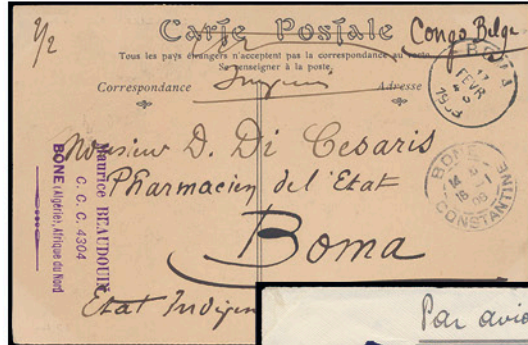 1/2
Carte Postale
Congo Belge
Tous les pays étrangers n'acceptent pas la correspondance au recto
Se renseigner à la poste.
Correspondance
Adresse
BOMA
17
FEVR
4-S
Monsieur D. Di Cesaris
Pharmacien de l'Etat
Boma
BONE
16 -1
06
CONSTANTINE
Maurice BEAUDOUIN
C. C. C. 4304
BONE (Algérie), Afrique du Nord
Par avio